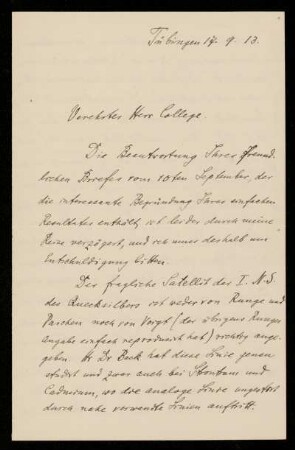 Tübingen 17. 9. 13.
Verehrter Herr College.
Die Beantwortung Ihres freund-
lichen Briefes vom 10ten September, der
die interessante Begründung Ihres einfachen
Resultates enthält, ist leider durch meine
Reise verzögert, und ich muss deshalb um
Entschuldigung bitten.
Der fragliche Satellit der I. N.S
des Quecksilbers ist weder von Runge und
Paschen noch von Voigt (der übrigens Runges
Angabe einfach reproduziert hat) richtig ange-
geben. Hr Dr Back hat diese Linie genau
studirt und zwar auch bei Strontium und
Cadmium, wo die analoge Linie ungestört
durch nahe verwandte Linien auftritt.